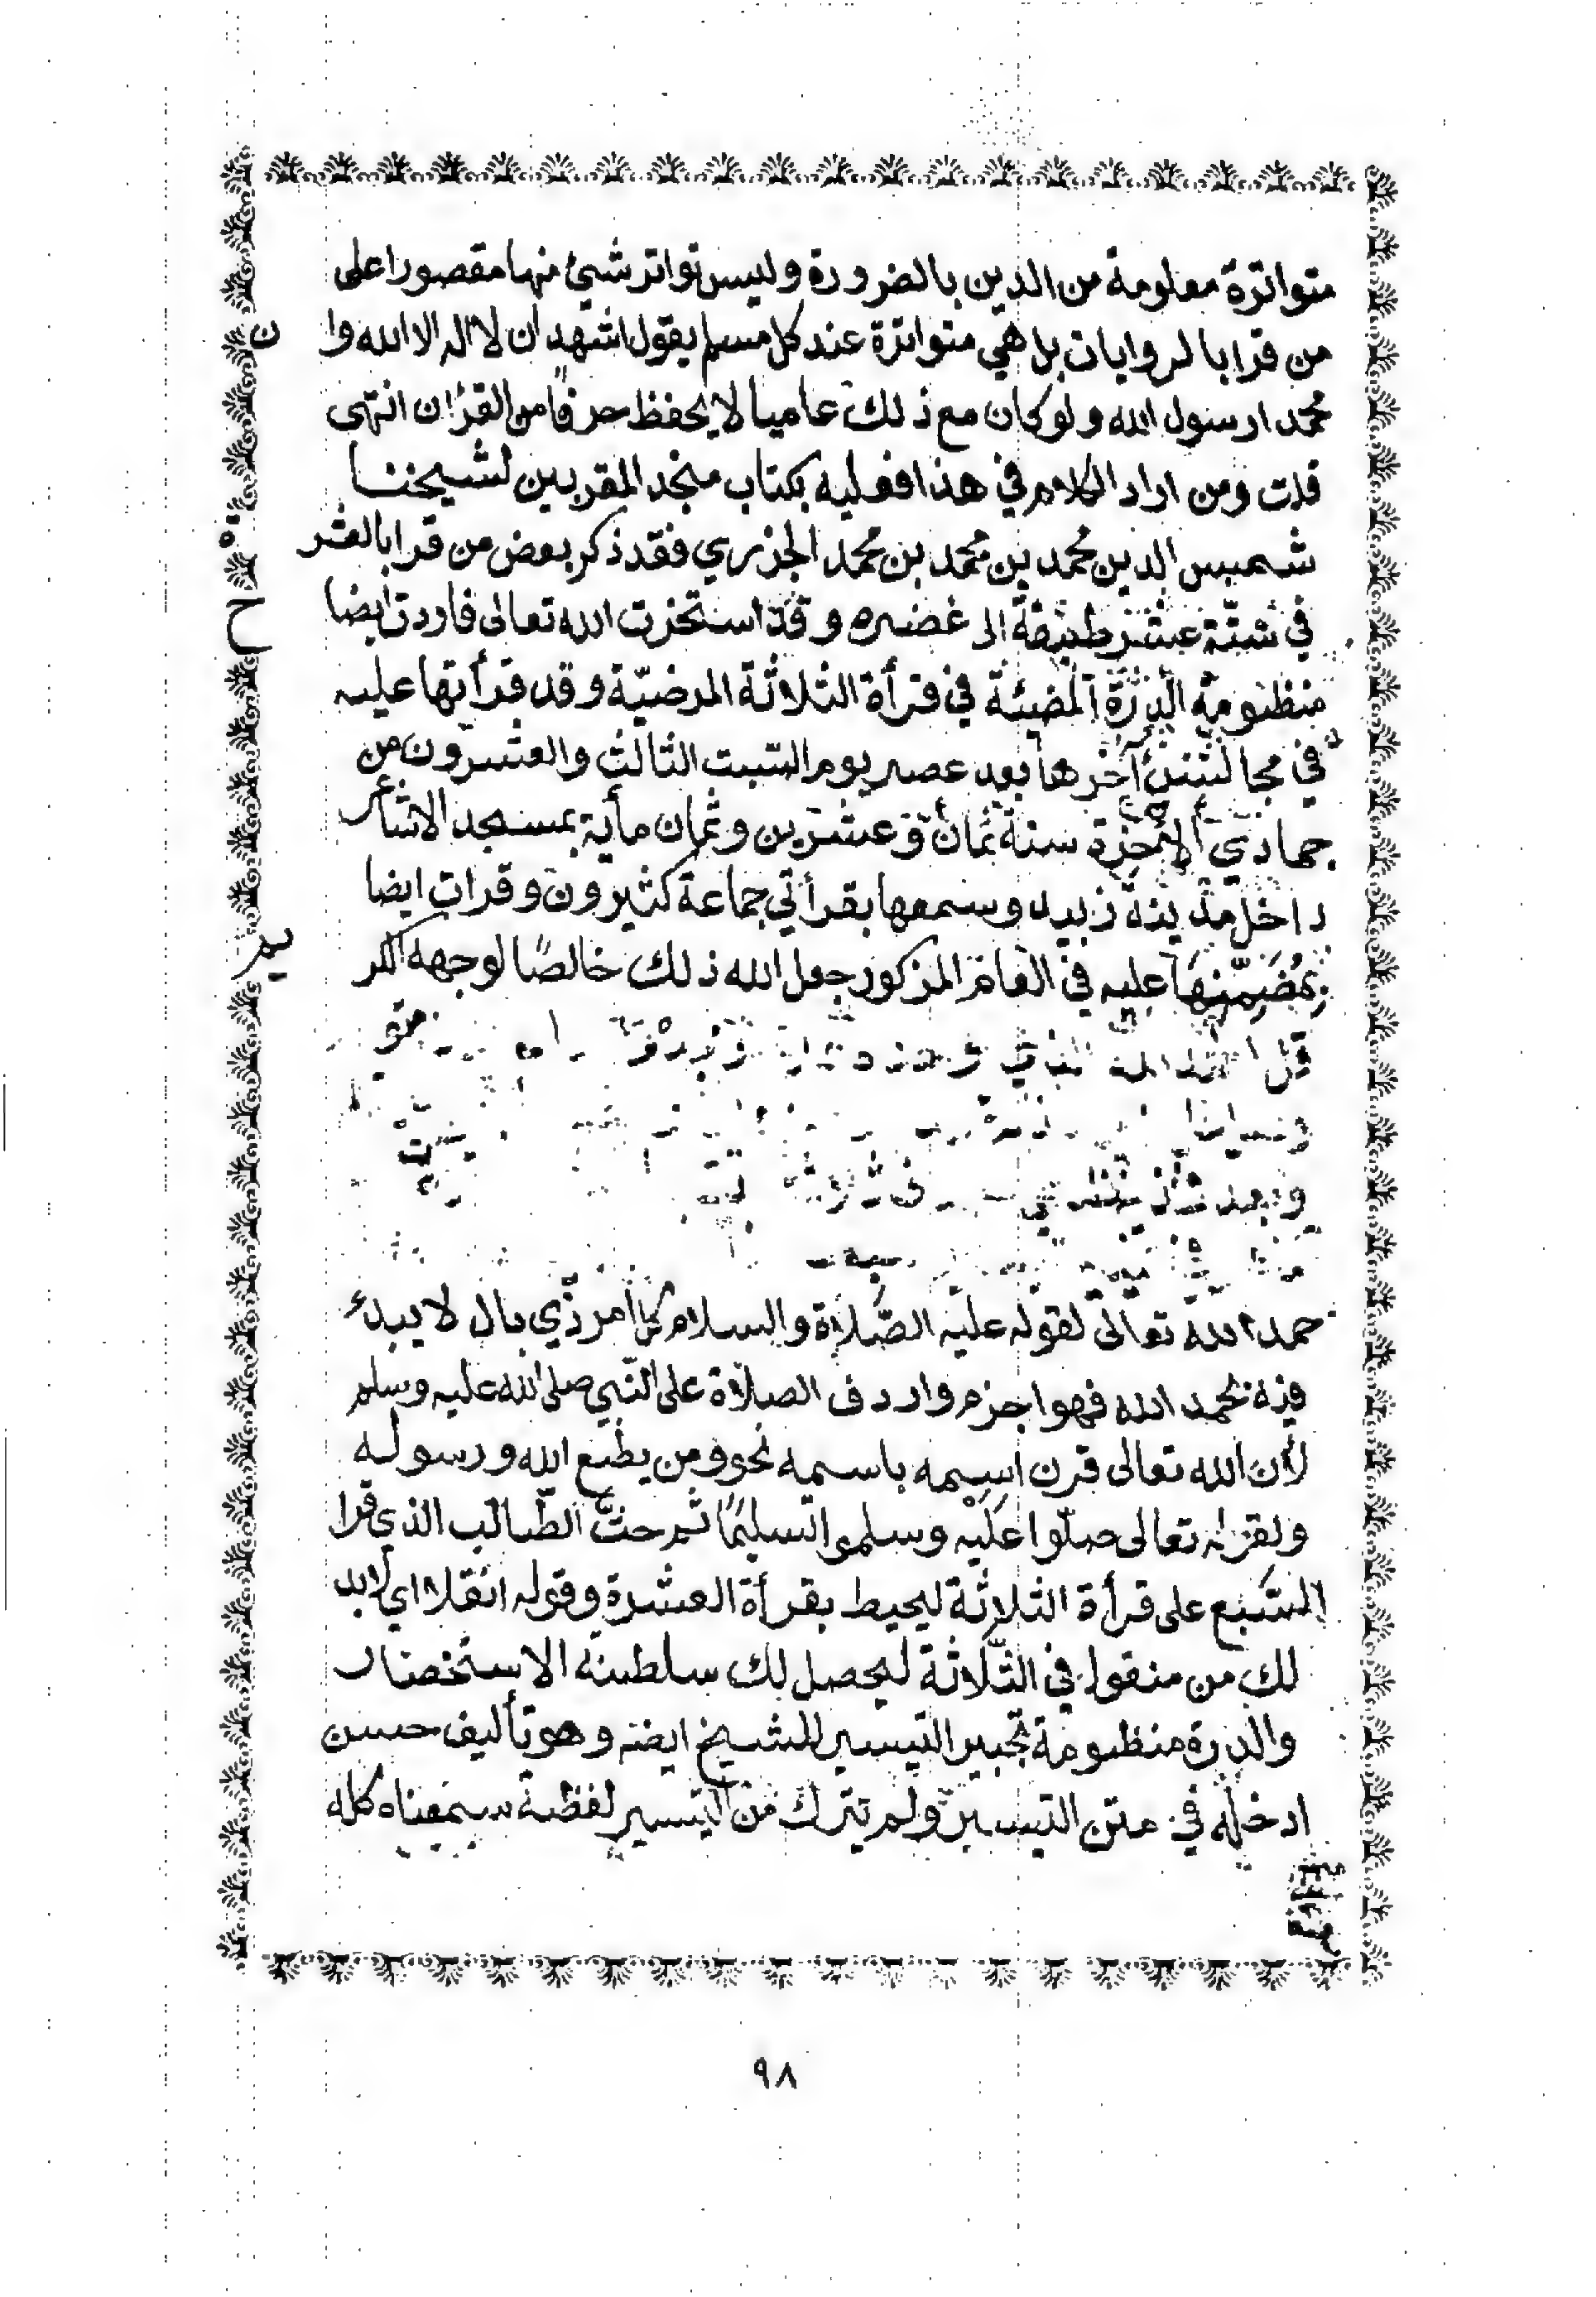 متواترة معلومة من الدين بالضرورة وليس تواتر شيئ منها مقصورا على
من قرا بالروايات بل هي متواترة عند كل مسلم يقول اشهد ان لا اله الا الله وان
محمدا رسول الله ولو كان مع ذلك عاميا لا يحفظ حرفًا من القران انتهى
قلت ومن اراد الكلام في هذا فعليه بكتاب منجد المقربين لشيخنا
شمس الدين محمد بن محمد بن محمد الجزري فقد ذكر بعض من قرا بالعشر
في ستة عشر طبقة الى عصره وقد استخرت الله تعالى فاردت ايضا
منظومة الدرة المضيئة في قرأة الثلاثة المرضيّة وقد قرأتها عليه
في مجالس آخرها بعد عصر يوم السبت الثالث والعشرون من
جمادي الاخرة سنة ثمان وعشرين وثمان مأية بمسجد الاشاعر
داخل مدينة زبيد وسمعها بقرأتي جماعة كثيرون وقرات ايضا
بمضمنها عليه في العام المذكور جعل الله ذلك خالصًا لوجهه الكريم
قل
وبعد
حمد الله تعالى لقوله عليه الصّلاة والسلام كل امر ذي بال لا يبدء
فيه بحمد الله فهو اجزم واردف الصلاة على النّبي صلى الله عليه وسلم
لأن الله تعالى قرن اسمه باسمه نحو ومن يطع الله ورسوله
ولقوله تعالى صلّوا عليه وسلموا تسليمًا ثم حثّ الطّالب الذي قرا
السّبع على قرأة الثلاثة ليحيط بقرأة العشرة وقوله انقلا اي لابد
لك من منقول في الثّلاثة ليحصل لك سلطنة الاستحضار
والدرة منظومة تحبير التيسير للشيخ ايضه وهو تأليف حسن
ادخله في متن التيسير ولم يترك من التيسير لفظة سمعناه كله
٩٨